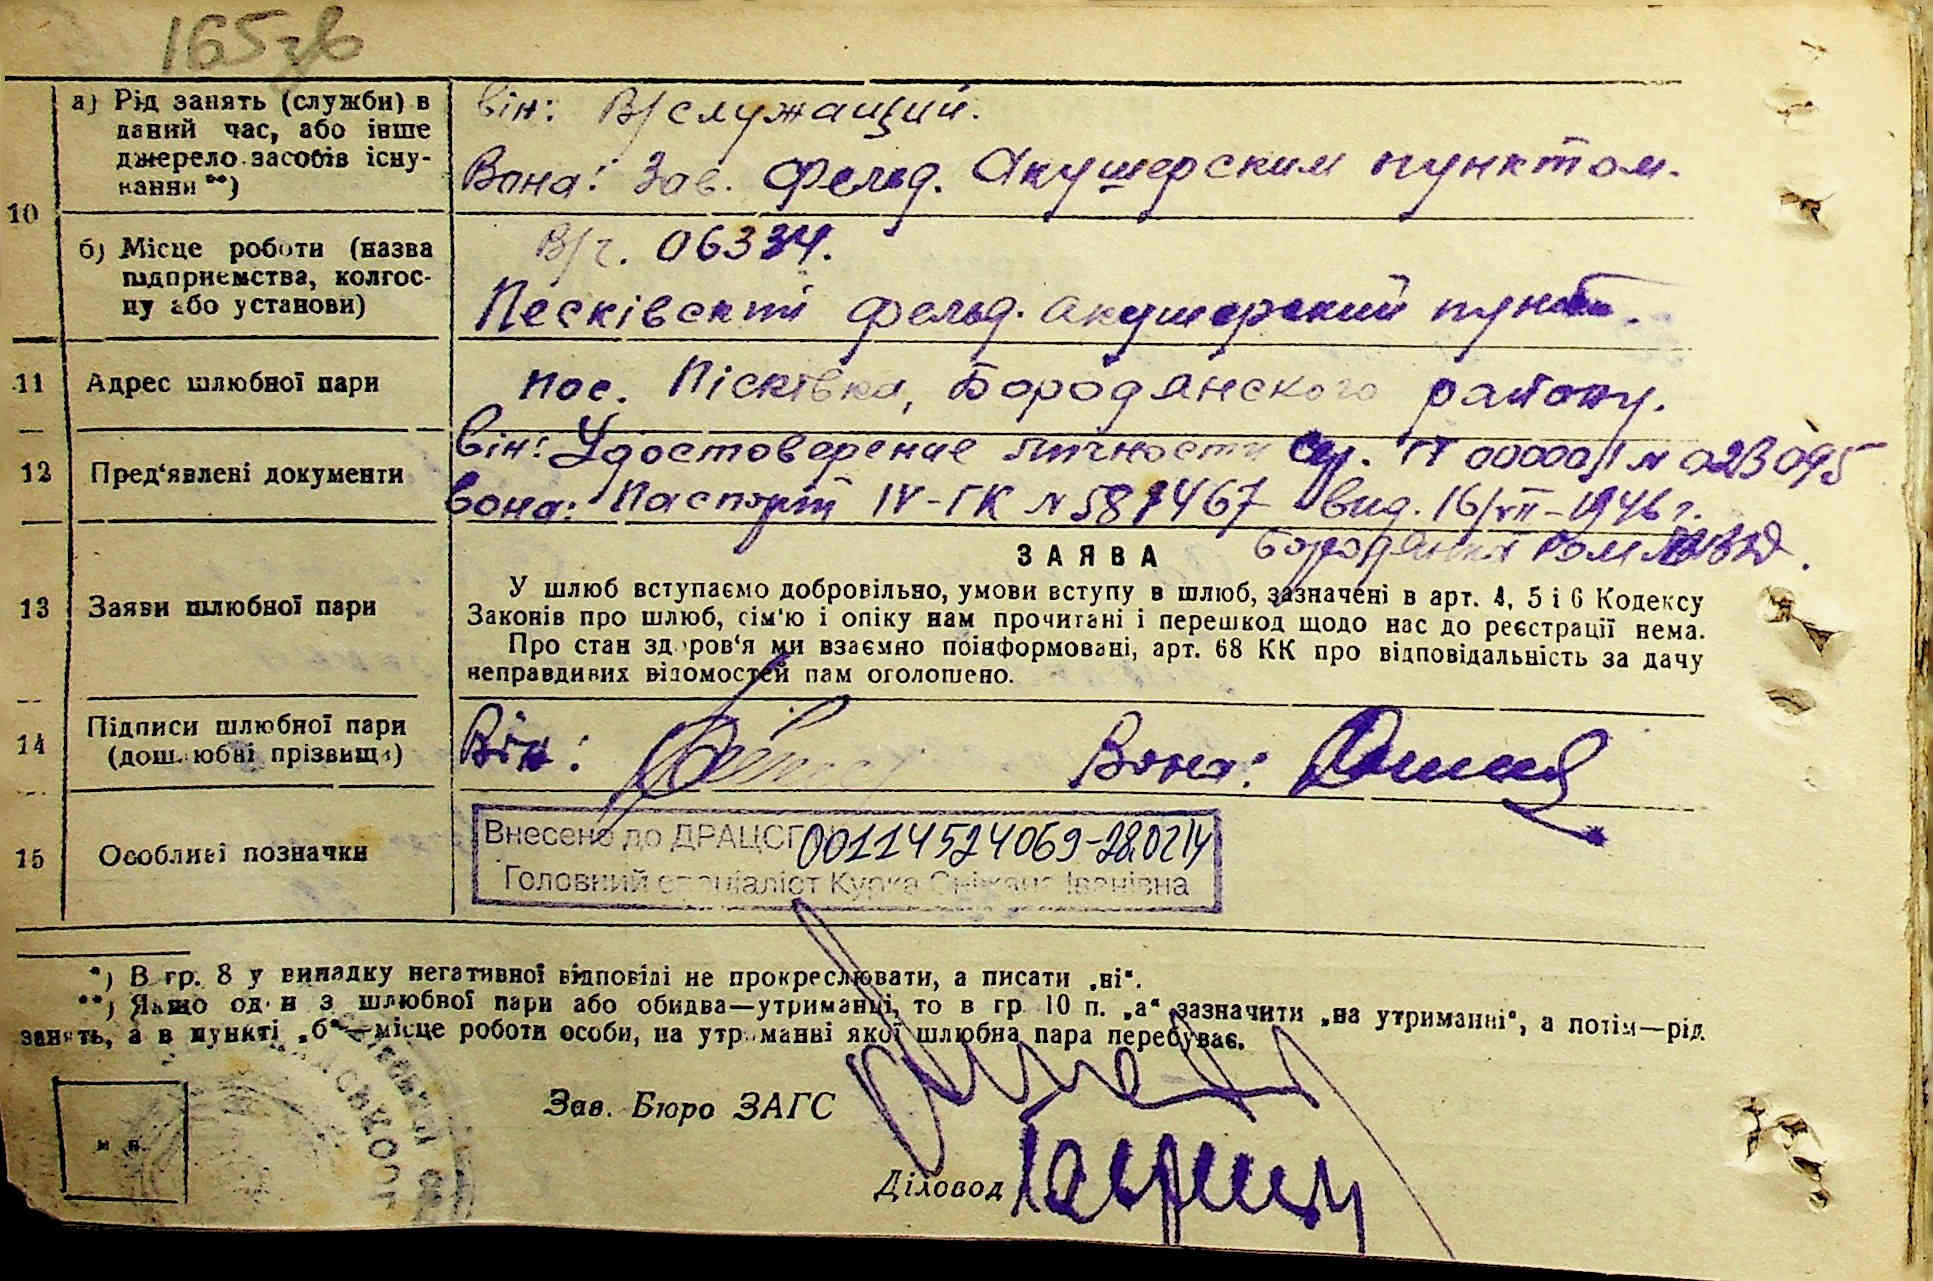 165зв
10
а) Рід занять (служби) в
даний час, або інше
джерело засобів існу-
вання **)
він: В/служащий.
Вона: Зав. фельд. Акушерским пунктом.
б) Місце роботи (назва
підприємства, колгос-
пу або установи)
В/ч. 06334.
Песківский фельд. акушерский пункт.
11
Адрес шлюбної пари
пос. Пісківка, Бородянского району.
12
Пред'явлені документи
він: Удостоверение личности Сер. 023095
вона: Паспорт IV-ГК N 587467 вид. 16/VII-1946 г.
Бородянка
13
Заяви шлюбної пари
ЗАЯВА
У шлюб вступаємо добровільно, умови вступу в шлюб, зазначені в арт. 4, 5 і 6 Кодексу
Законів про шлюб, сім'ю і опіку нам прочитані і перешкод щодо нас до реєстрації нема.
Про стан здоров'я ми взаємно поінформовані, арт. 68 КК про відповідальність за дачу
неправдивих відомостей нам оголошено.
14
Підписи шлюбної пари
(дошлюбні прізвища)
Він: Вона:
15
Особливі позначки
Внесено до ДРАЦСГ 00114524069-28.02.14
Головний спеціаліст Курка Сніжана Іванівна
*) В гр. 8 у випадку негативної відповіді не прокреслювати, а писати „ні“.
**) Якщо один з шлюбної пари або обидва—утриманці, то в гр. 10 п. „а“ зазначити „на утриманні“, а потім—рід
занять, а в пункті „б“—місце роботи особи, на утриманні якої шлюбна пара перебуває.
Зав. Бюро ЗАГС
Діловод